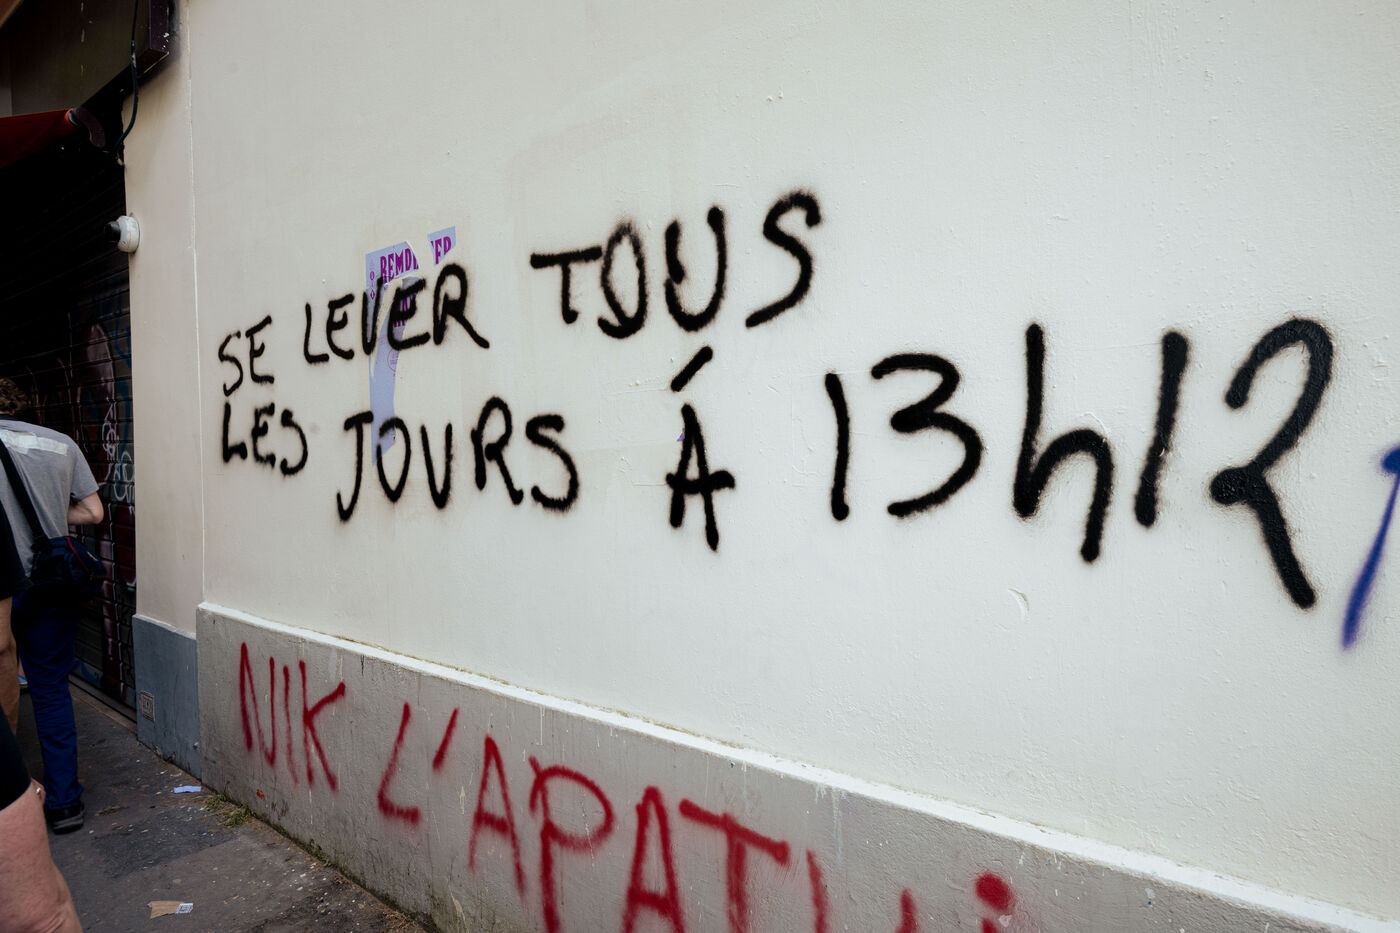 SE LEVER TOUS
LES JOURS À 13h12
NIK L'APAT